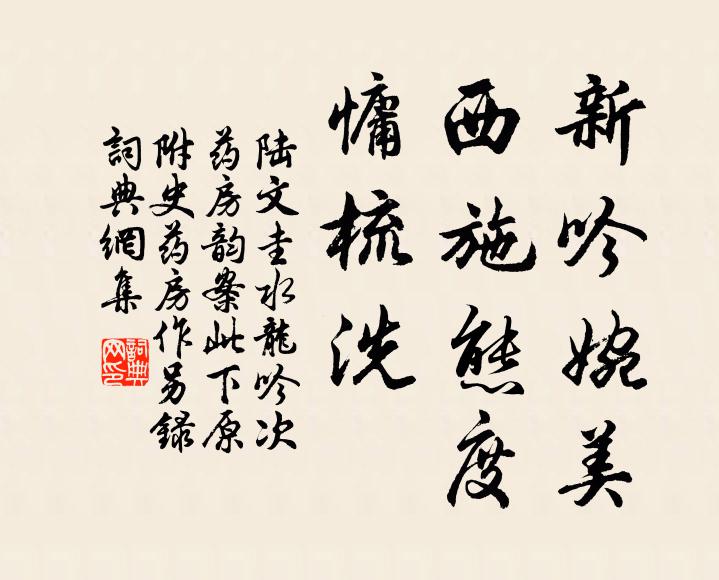 新吟婉美
西施態度
慵梳洗
陆文圭水龍吟次
药房韵案此下原
附史药房作另録
詞典網集
詞典
网印